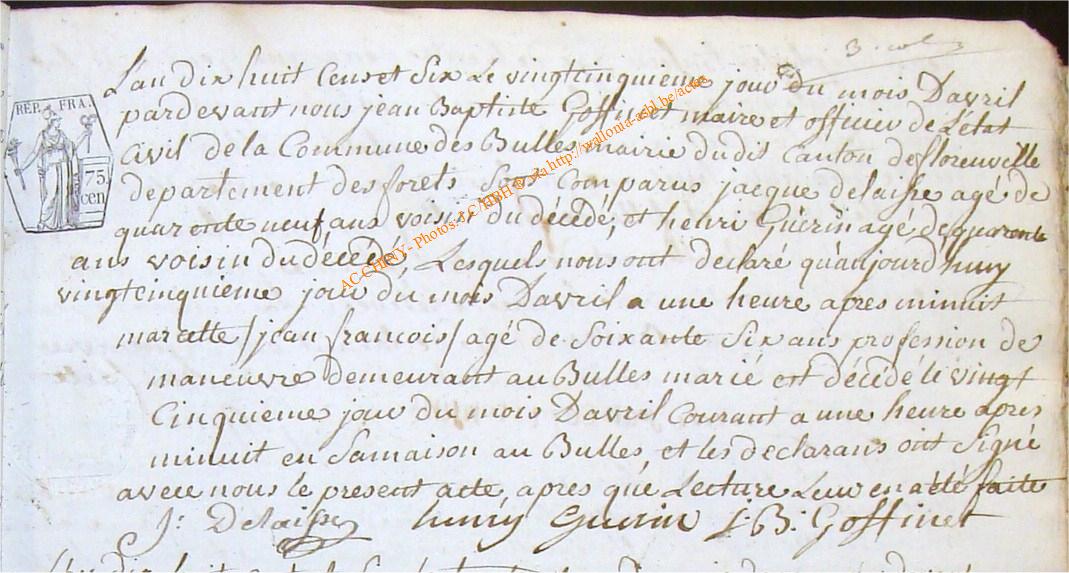 3. col
L'an dix huit cens et six Le vingtcinquieme jour du mois Davril
pardevant nous jean Baptiste Goffinet maire et officier de L'état
REP. FRA.
Civil de la Commune des Bulles mairie dudit Canton de florenville
75
cen
departement des forets Sont Comparus jacque delaisse agé de
quarente neuf ans voisin du décédé, et henri Guérin agé de quarente
ans voisin du décédé, Lesquels nous ont declaré qu'aujourdhuy
vingtcinquieme jour du mois Davril a une heure apres minuit
marcette /jean françois/ agé de Soixante Six ans profession de
maneuvre demeurant au Bulles marié est décédé le vingt
Cinquieme jour du mois Davril Courant a une heure apres
minuit en Samaison au Bulles, et les declarans ont Signé
avece nous le present acte, apres que Lecture Leur en a été faite
J: Delaisse henry Guerin J. B: Goffinet
AC-CHINY- Photos: JC/MBH ® sta http://wallonia-asbl.be/actes